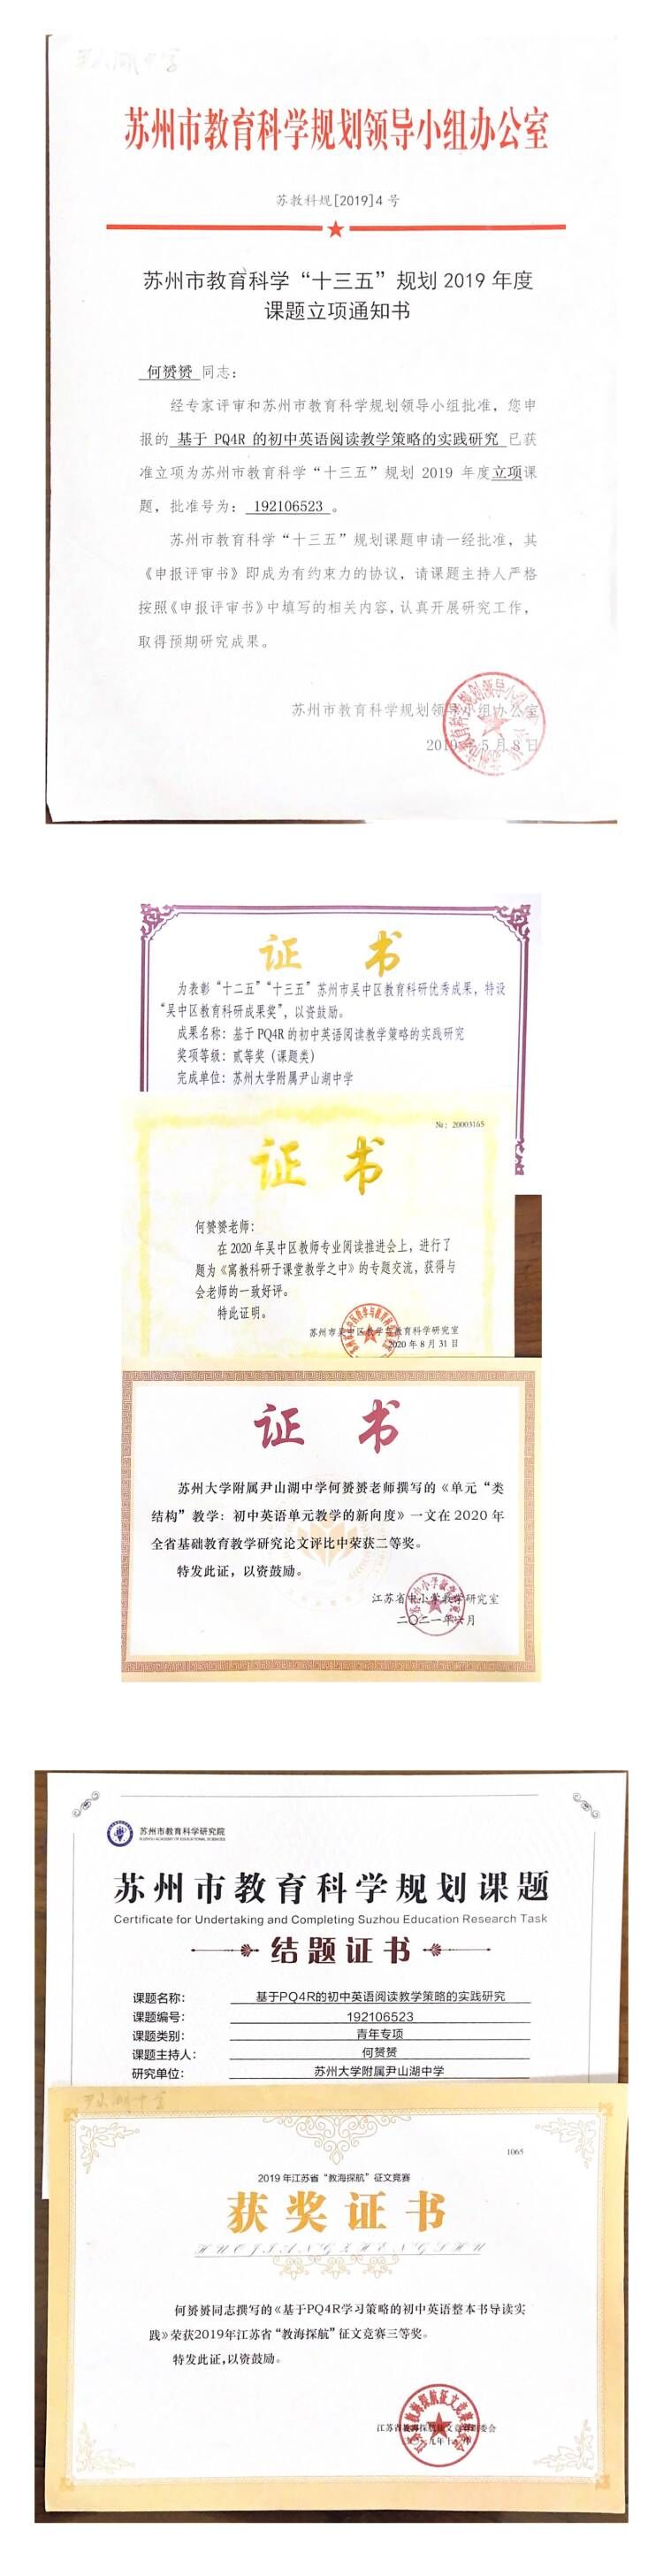 苏州市教育科学规划领导小组办公室
苏教科规[2019]4 号
苏州市教育科学“十三五”规划 2019 年度
课题立项通知书
何赟赟 同志：
经专家评审和苏州市教育科学规划领导小组批准，您申
报的 基于 PQ4R 的初中英语阅读教学策略的实践研究 已获
准立项为苏州市教育科学“十三五”规划 2019 年度立项课
题，批准号为： 192106523 。
苏州市教育科学“十三五”规划课题申请一经批准，其
《申报评审书》即成为有约束力的协议，请课题主持人严格
按照《申报评审书》中填写的相关内容，认真开展研究工作，
取得预期研究成果。
苏州市教育科学规划领导小组办公室
2019年5月8日
证 书
为表彰“十二五”“十三五”苏州市吴中区教育科研优秀成果，特设
“吴中区教育科研成果奖”，以资鼓励。
成果名称：基于PQ4R的初中英语阅读教学策略的实践研究
奖项等级：贰等奖（课题类）
完成单位：苏州大学附属尹山湖中学
№：20003165
证 书
何赟赟老师：
在2020年吴中区教师专业阅读推进会上，进行了
题为《寓教科研于课堂教学之中》的专题交流，获得与
会老师的一致好评。
特此证明。
苏州市吴中区教学与教育科学研究室
2020年8月31日
证 书
苏州大学附属尹山湖中学何赟赟老师撰写的《单元“类
结构”教学：初中英语单元教学的新向度》一文在2020年
全省基础教育教学研究论文评比中荣获二等奖。
特发此证，以资鼓励。
江苏省中小学教学研究室
二〇二一年六月
苏州市教育科学研究院
SUZHOU ACADEMY OF EDUCATIONAL SCIENCES
苏州市教育科学规划课题
Certificate for Undertaking and Completing Suzhou Education Research Task
结题证书
课题名称： 基于PQ4R的初中英语阅读教学策略的实践研究
课题编号： 192106523
课题类别： 青年专项
课题主持人： 何赟赟
研究单位： 苏州大学附属尹山湖中学
尹山湖中学
1065
2019年江苏省“教海探航”征文竞赛
获奖证书
HUOJIANGZHENGSHU
何赟赟同志撰写的《基于PQ4R学习策略的初中英语整本书导读实
践》荣获2019年江苏省“教海探航”征文竞赛三等奖。
特发此证，以资鼓励。